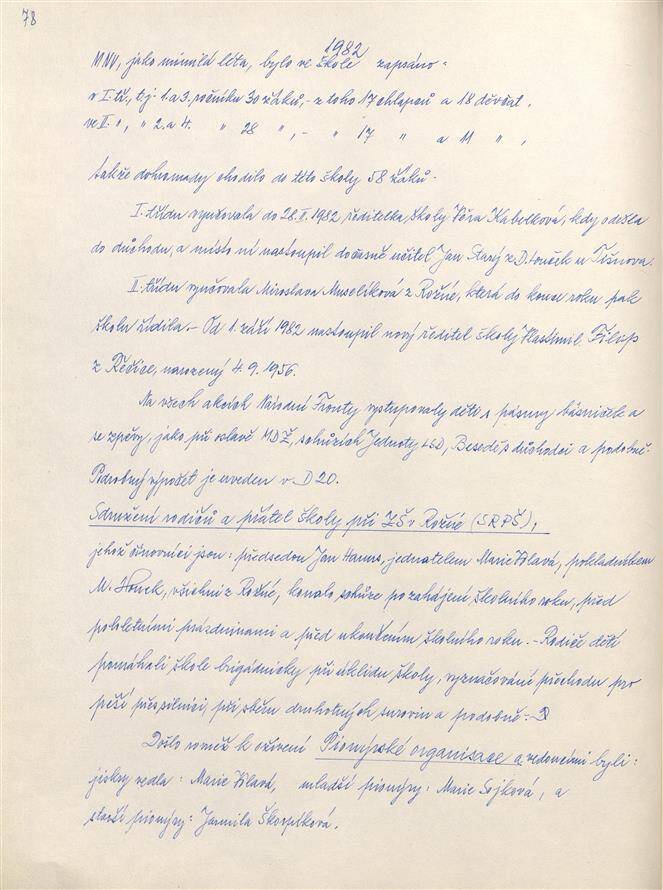 78
1982
MNV, jako minulá léta, bylo ve škole zapsáno:
v I. tř., t.j. 1. a 3. ročníku 30 žáků, - z toho 17 chlapců a 18 děvčat.
ve II. " , " 2. a 4. " 28 " , - " 17 " a 11 " ,
takže dohromady chodilo do této školy 58 žáků.
I. třídu vyučovala do 28.II.1982, ředitelka školy Věra Kabelková, kdy odešla
do důchodu, a místo ní nastoupil dočasně učitel Jan Starý z D. Louček u Tišnova.
II. třídu vyučovala Miroslava Muselíková z Rožné, která do konce roku pak
školu řídila. - Od 1. září 1982 nastoupil nový ředitel školy Vlastimil Filip
z Řečice, narozený 4.9.1956.
Na všech akcích Národní Fronty vystupovaly děti s pásmy básniček a
se zpěvy, jako při oslavě MDŽ, schůzích Jednoty LSD, Besedě s důchodci a podobně.
Podrobný výpočet je uveden v D 20.
Sdružení rodičů a přátel školy při ZŠ v Rožné (SRPŠ),
jehož činovníci jsou: předsedou Jan Hanus, jednatelem Marie Vlavá, pokladníkem
M. , všichni z Rožné, konalo schůze po zahájení školního roku, před
pololetními prázdninami a před ukončením školního roku. - Rodiče dětí
pomáhali škole brigádnicky při úklidu školy, vyznačování přechodu pro
pěší přes silnici, při sběru druhotných surovin a podobně. D
Došlo rovněž k oživení Pionýrské organisace a vedoucími byli:
jiskry vedla: Marie Vlavá, mladší pionýry: Marie Sojková, a
starší pionýry: Jarmila Škorpíková.